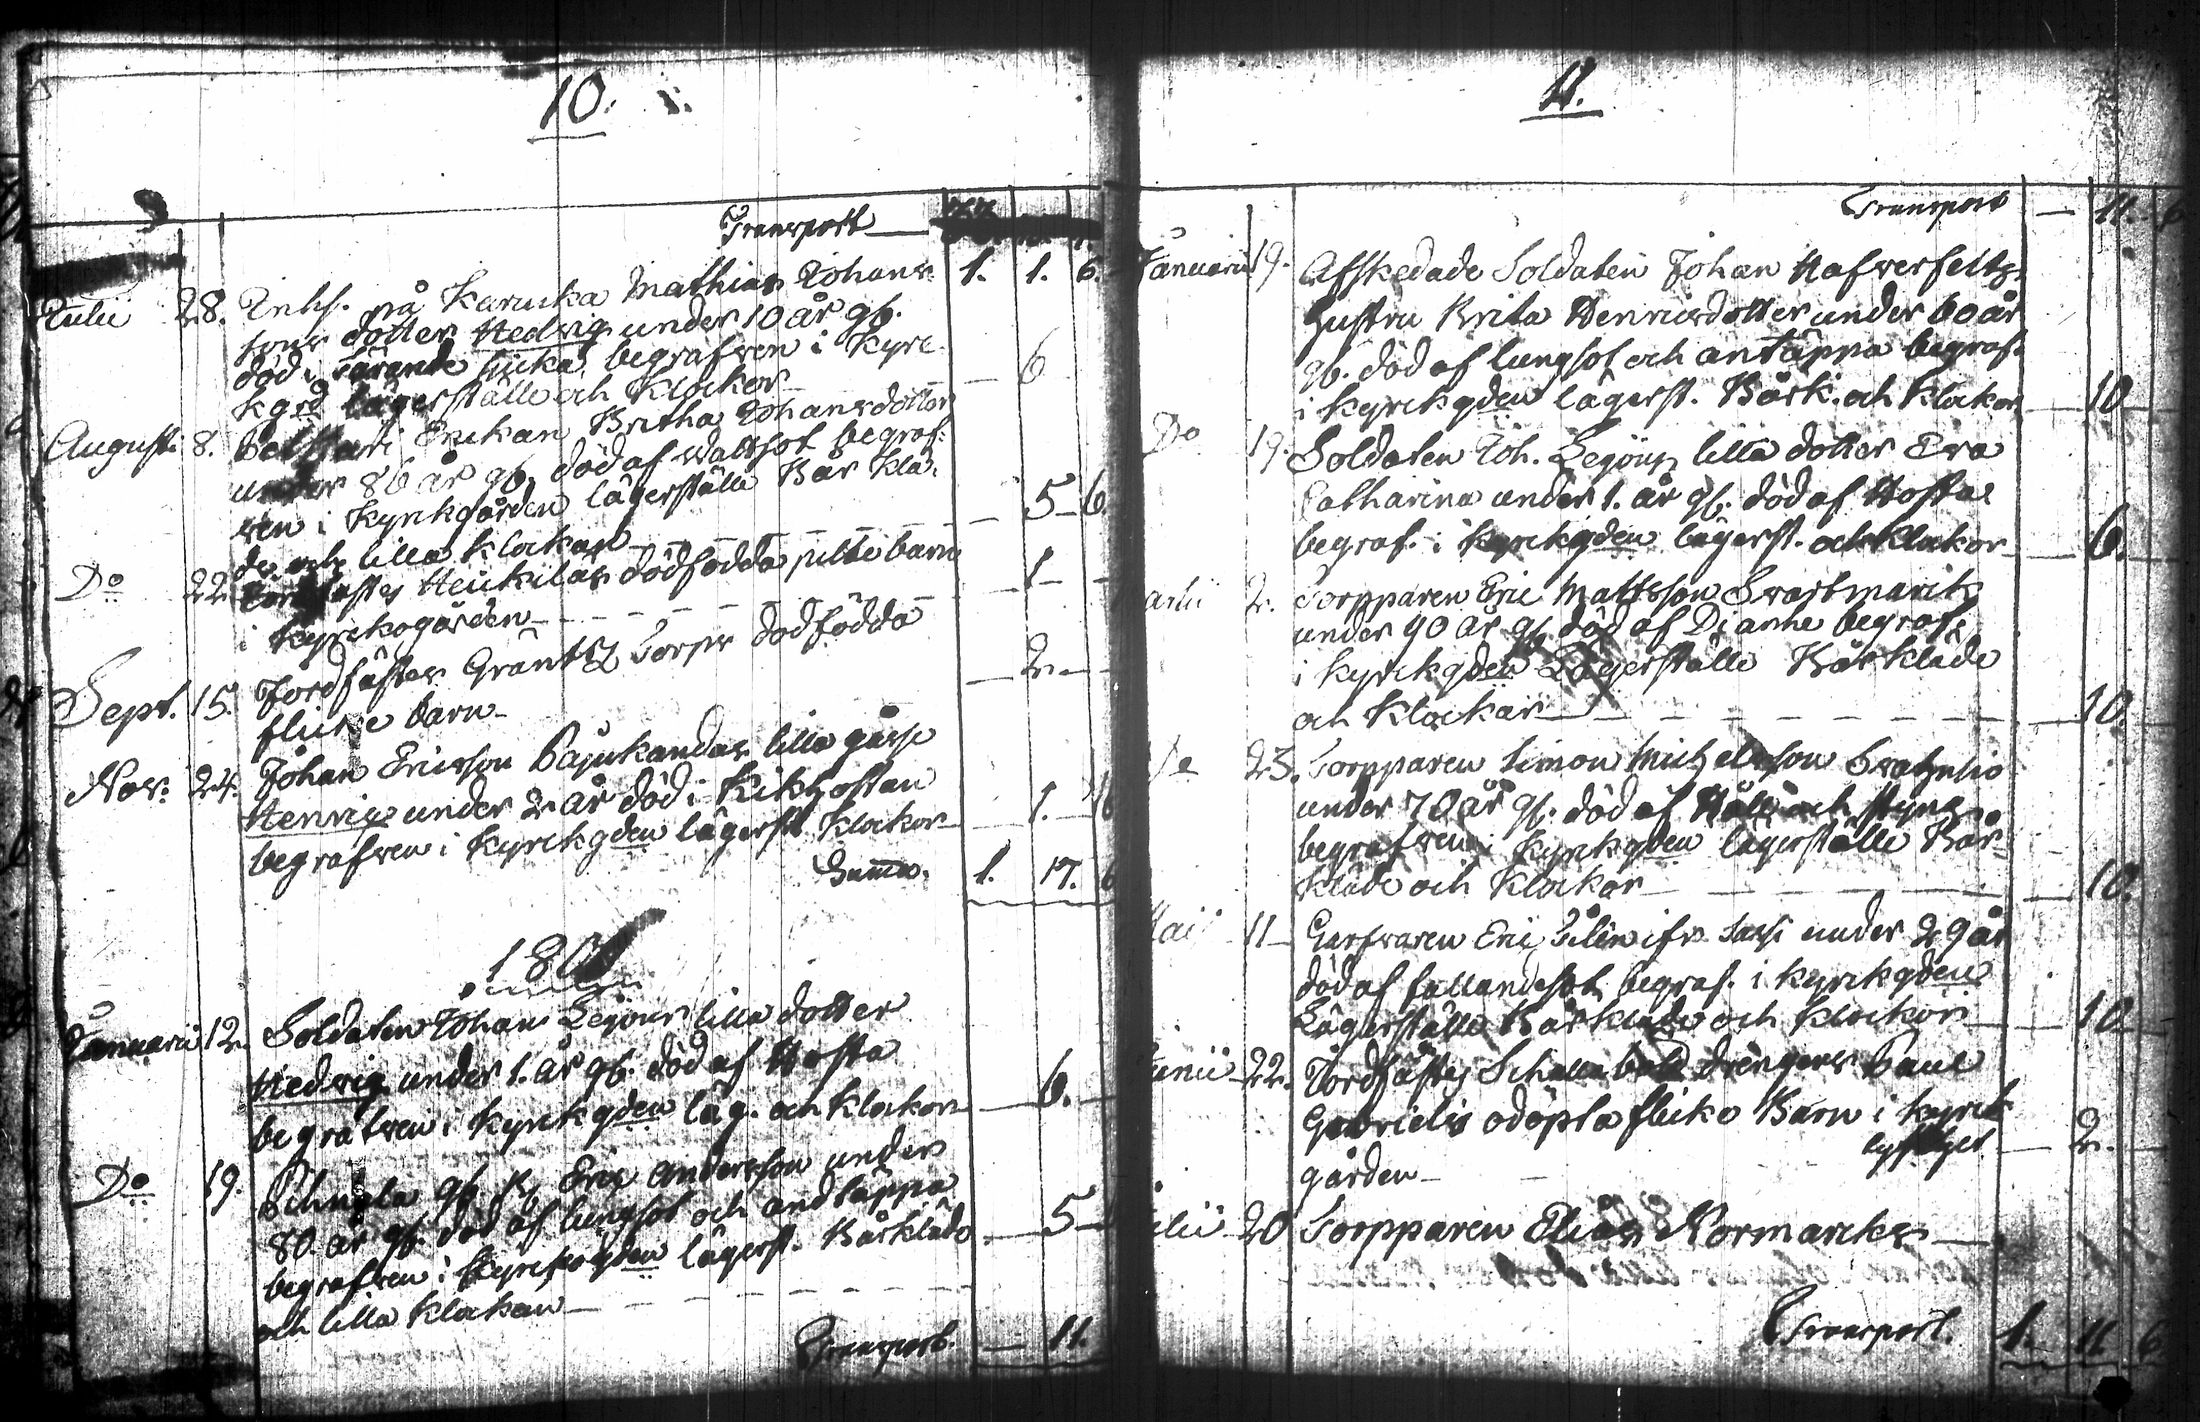 10.
Transport
1. 1. 6.
Julii 28. Inhs. på Karuka Mathias Johans
sons dotter Hedvig under 10 år gb.
död i tärande siuka begrafven i Kyrc
kgrd lägerställe och Klockor 6
Augusti 8. Enckan Britha Johansdotter
under 86 år gb. död af Wattsot begraf:
ven i Kyrkgården lägerställe Bår Klä-
de och lilla klockan 5 6.
Do 22 Heickilas dödfödda pilte barn
i Kyrckogården 1
Sept. 15. Jordfästes Grantz Torps dödfödda
flicke barn 2
Nov. 24. Johan Ericsson Pajukandas lilla gåsse
Henric under 2 år död i Kikhostan
begrafven i Kyrckgden lägerst Klockor 1. 6
Summa. 1. 17. 6
180
Januarii 12. Soldaten Johan Legöus lilla dotter
Hedvig under 1. år gb. död af Hosta
begrafven i Kyrckgden läg. och Klockor 6.
Do 19. Eric Andersson under
80 år gb. död af lungsot och andtäppa
begrafven i Kyrckogden lägerst. Bårkläde 5
och lilla Klockan
Transport. 11.
11.
Transport 11. 6
Januarii 19. Afskedade Soldaten Johan Hafverfelts
Hustru Brita Henricsdotter under 60 år
gb. död af lungsot och antäppa begraf.
i Kyrckgden lägerst. Bårk. och Klockor 10
Do 19. Soldaten Joh. Legöus lilla dotter Eva
Catharina under 1. år gb. död af Hosta
begraf. i Kyrckgden lägerst. och Klockor 6.
2. Torpparen Eric Mattsson Svartmark
under 90 år gb. död af begraf.
i Kyrckgden Lägerställe Bårkläde
och Klockor 10.
23. Torpparen Simon Michelsson
under 70 år gb. död af Håll och styng
begrafven i Kyrckgden lägerställe Bår
kläde och Klockor 10.
Maii 11 Garfvaren Eric under 29 år
död af fallandesot begraf. i Kyrckgden
Lägerställe Bårkläde och Klockor 10
Junii 22. Jordfästes drängens Paul
Gabriels odöpta flicke Barn i Kyrck
gården 2.
Julii 20 Torpparen Elias Normarcks
Transport. 1. 11. 6